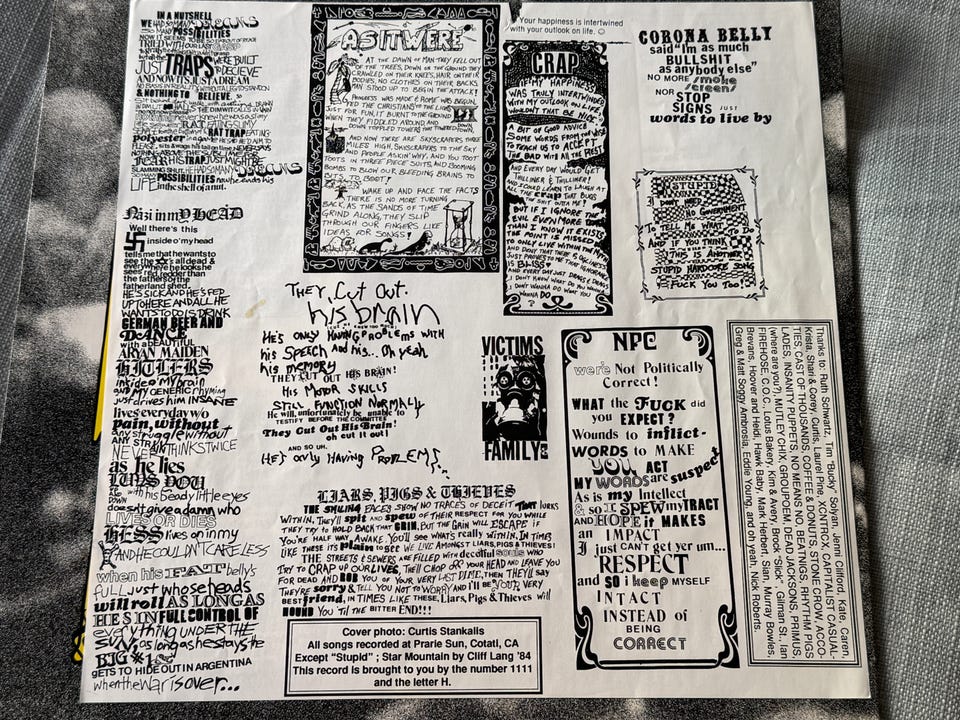 IN A NUTSHELL
WE HAD SO MANY DREAMS
SO MANY POSSIBILITIES
NOW IT SEEMS TO BE
TRIED WITH OUR LAST
JUST TRAPS WERE BUILT
TO DECIEVE
AND NOW IT IS JUST A DREAM
NO BASIS IN REALITY WITHOUT A LEG TO STAND ON
& NOTHING TO BELIEVE.
RAT TRAP
polyester
FEAR HIS TRAP JUST MIGHT BE
SLAMMING SHUT. HE HAD SO MANY DREAMS
POSSIBILITIES now he ends his
LIFE in the shell of a nut.
Nazi in my HEAD
Well there's this
inside o' my head
tells me that he wants to
see the all dead &
see where he looks he
sees red redder than
the fathers of the
fatherland shed.
HE'S SICK AND HE'S FED
UP TO HERE AND ALL HE
WANTS TO DO IS DRINK
GERMAN BEER AND
DANCE
WITH A BEAUTIFUL
ARYAN MAIDEN
HITLERS
inside o' my brain
and MY GENERIC rhyming
just drives him INSANE
lives everyday w/o
pain, without
any struggle without
ANY STRAIN
NEVER THINKS TWICE
as he lies
with his beady little eyes
doesn't give a damn who
LIVES OR DIES
HESS lives on in my
AND HE COULDN'T CARE LESS
when his FAT belly's
FULL just whose heads
will roll AS LONG AS
HE'S IN FULL CONTROL OF
everything UNDER THE
SUN, as long as he stays the
BIG #1 &
GETS TO HIDE OUT IN ARGENTINA
when the War is over...
AS IT WERE
AT THE DAWN OF MAN THEY FELL OUT
OF THE TREES, DOWN ON THE GROUND THEY
CRAWLED ON THEIR KNEES, HAIR ON THEIR
BODIES, NO CLOTHES ON THEIR BACKS,
MAN STOOD UP TO BEGIN THE ATTACK!
PROGRESS WAS MADE & ROME WAS BEGUN,
FED THE CHRISTIANS TO THE LIONS
JUST FOR FUN, IT BURNT TO THE GROUND
WHEN THEY FIDDLED AROUND AND
DOWN TOPPLED TOWERS THAT
AND NOW THERE ARE SKYSCRAPERS THREE
MILES HIGH, SKYSCRAPERS TO THE SKY
AND PEOPLE ASKIN' WHY, AND YOU TOOT
TOOTS IN THREE PIECE SUITS, AND BOOMING
BOMBS TO BLOW OUR BLEEDING BRAINS TO
BITS, TO BOOT!
WAKE UP AND FACE THE FACTS
THERE IS NO MORE TURNING
BACK, AS THE SANDS OF TIME
GRIND ALONG, THEY SLIP
THROUGH OUR FINGERS LIKE
IDEAS FOR SONGS!
Your happiness is intertwined
with your outlook on life. ☺
CRAP
IF MY HAPPINESS
WAS TRULY INTERTWINED
WITH MY OUTLOOK ON LIFE
WOULDN'T THAT BE NICE
A BIT OF GOOD ADVICE
SOME WORDS FROM THE WISE
TO TEACH US TO ACCEPT
THE BAD WITH ALL THE REST
AND EVERY DAY WOULD GET
THILLINER & THILLINER!
AND I COULD LEARN TO LAUGH AT
ALL THE crap THAT BUGS
THE SHIT OUTTA ME!
BUT IF I IGNORE THE
EVIL EVEN MORE THEN
THAN I KNOW IT EXISTS
THE POINT IS MISSED
TO ONLY LIVE WITHIN MY MYTH
JUST PROVES TO ME THAT IGNORANCE
IS BLISS.
I DON'T WANNA DO WHAT YOU
WANNA DO
CORONA BELLY
said "Im as much
BULLSHIT
as anybody else"
NO MORE smoke
screens
NOR STOP
SIGNS JUST
words to live by
STUPID
I DON'T NEED
NO GOVERNMENT
TO TELL ME WHAT TO DO
AND IF YOU THINK
THIS IS ANOTHER
STUPID HARDCORE SONG
FUCK YOU TOO!
THEY CUT OUT
his brain
HE'S ONLY HAVING PROBLEMS WITH
his SPEECH And his... Oh yeah
his memory
THEY CUT OUT HIS BRAIN!
HIS MOTOR SKILLS
STILL FUNCTION NORMALLY
He will, unfortunately be unable to
TESTIFY BEFORE THE COMMITTEE
They Cut Out His Brain!
oh cut it out!
AND SO UH,
HE'S only HAVING PROBLEMS...
VICTIMS
FAMILY
NPC
we're Not Politically
Correct!
WHAT the FUCK did
you EXPECT?
Wounds to inflict-
WORDS to MAKE
YOU ACT
MY WORDS are suspect
As is my Intellect
& so I SPEW my TRACT
AND HOPE it MAKES
an IMPACT
I just CAN'T get yer um...
RESPECT
and SO i keep MYSELF
INTACT
INSTEAD OF
BEING
CORRECT
Thanks to: Ruth Schwartz, Tim "Bucky" Solyan, Jenni Clifford, Kate, Caren,
Krista, Shari & Corey, Curtis, Laurel Pine, XCNTRICX, CAPITALIST CASUAL-
TIES, CAST OF THOUSANDS, COFFEE & DONUTS, STONE CROW, ACCO-
LADES, INSANITY PUPPETS, NO MEANS NO, BEATNIGS, RHYTHM PIGS
(where are you?), MUTLEY CHIX, GROUPOEM, DEAD JACKSONS, PRIMUS,
FIREHOSE, C.O.C., Lotus Bakery, Kim & Avery, Brock "Slick", Gilman St. Ian
Brevans, Hoover and Heidi, Hawk Baby, Mark Herbert, Sian, Murray Bowles,
Greg & Matt Soggy Ambrosia, Eddie Young, and oh yeah, Nick Roberts.
LIARS, PIGS & THIEVES
THE SMILING FACES SHOW NO TRACES OF DECEIT THAT lurks
WITHIN. THEY'LL spit AND spew OF THEIR RESPECT FOR YOU WHILE
THEY TRY TO HOLD BACK THAT GRIN. BUT THE GAIN WILL ESCAPE IF
YOU'RE HALF WAY AWAKE. YOU'LL SEE WHAT'S really WITHIN. IN TIMES
LIKE THESE IT'S plain to get WE LIVE AMONGST LIARS, PIGS & THIEVES!
THE STREETS & SEWERS ARE FILLED WITH deceitful souls WHO
TRY TO CRAP UP OUR LIVES, THEY'LL CHOP OFF YOUR HEAD AND LEAVE YOU
FOR DEAD AND ROB YOU OF YOUR VERY LAST DIME, THEN THEY'LL SAY
THEY'RE sorry & TELL YOU NOT TO WORRY AND I'll BE YOUR VERY
BEST friend, IN TIMES LIKE THESE, Liars, Pigs & Thieves will
HOUND YOU 'TIL THE BITTER END!!!
Cover photo: Curtis Stankalis
All songs recorded at Prarie Sun, Cotati, CA
Except "Stupid" ; Star Mountain by Cliff Lang '84
This record is brought to you by the number 1111
and the letter H.